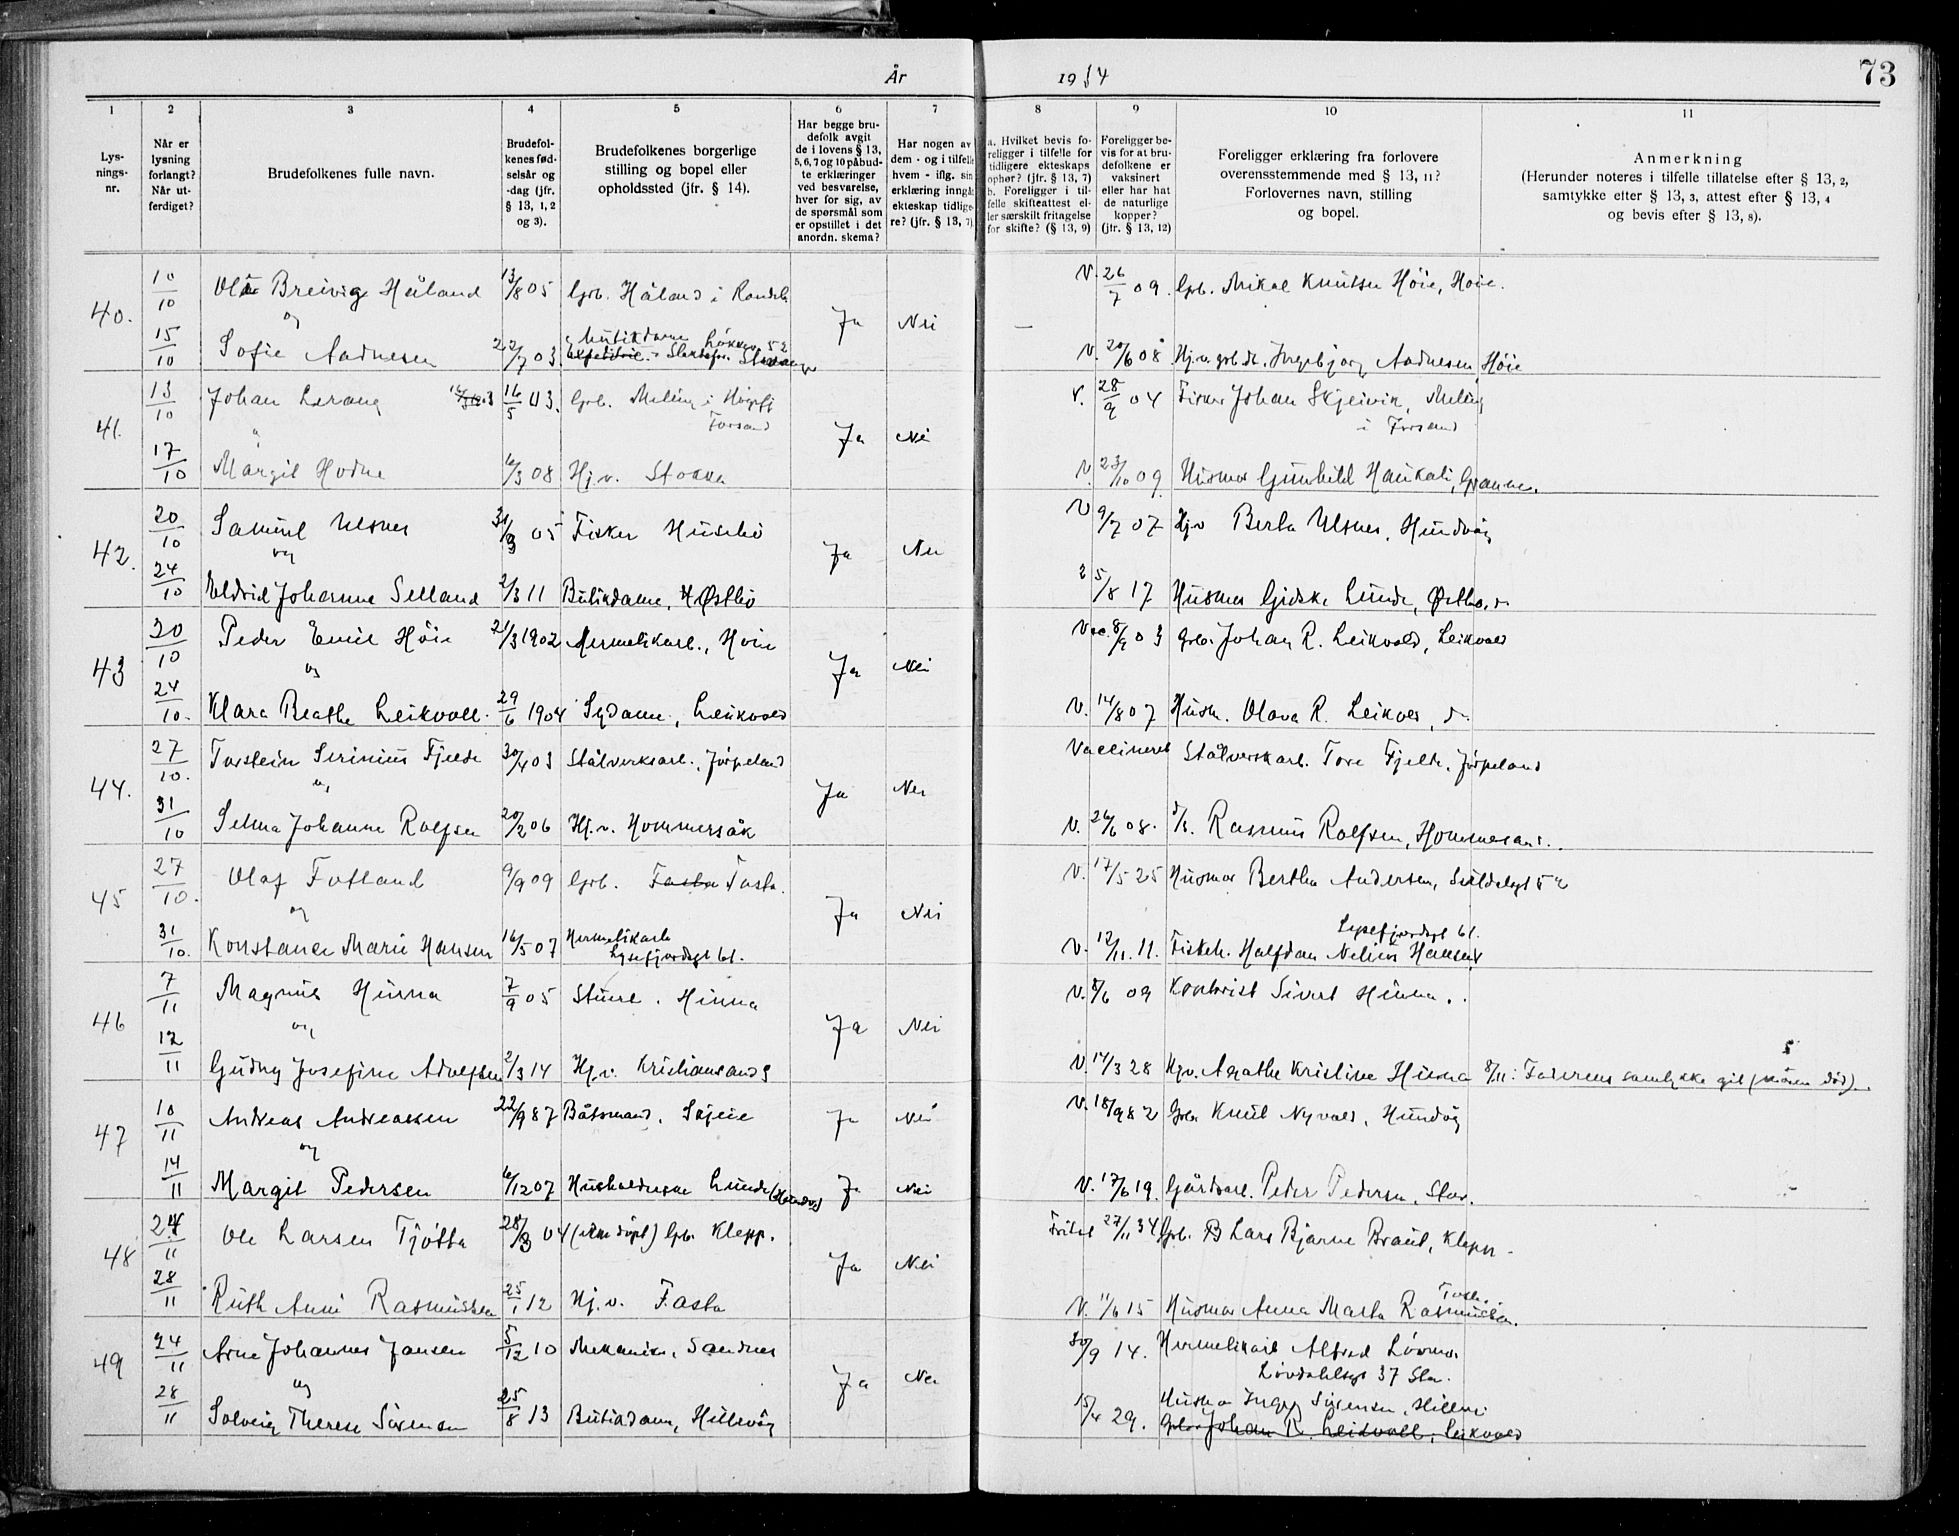 År 1934
73
1
2
3
4
5
6
7
8
9
10
11
Lys-
nings-
nr.
Når er
lysning
forlangt?
Når ut-
ferdiget?
Brudefolkenes fulle navn.
Brudefol-
kenes fød-
selsår og
-dag (jfr.
§ 13, 1, 2
og 3).
Brudefolkenes borgerlige
stilling og bopel eller
opholdssted (jfr. § 14).
Har begge bru-
defolk avgit
de i lovens § 13,
5, 6, 7 og 10 påbud-
te erklæringer
ved besvarelse,
hver for sig, av
de spørsmål som
er opstillet i det
anordn. skema?
Har nogen av
dem - og i tilfelle
hvem - iflg. sin
erklæring inngåt
ekteskap tidlige-
re? (jfr. § 13, 7)
a. Hvilket bevis fo-
religger i tilfelle for
tidligere ekteskaps
ophør? (jfr. § 13, 7)
b. Foreligger i til-
felle skifteattest el-
ler særskilt fritagelse
for skifte? (§ 13, 9)
Foreligger be-
vis for at bru-
defolkene er
vaksinert
eller har hat
de naturlige
kopper?
(jfr. § 13, 12)
Foreligger erklæring fra forlovere
overensstemmende med § 13, 11?
Forlovernes navn, stilling
og bopel.
Anmerkning
(Herunder noteres i tilfelle tillatelse efter § 13, 2,
samtykke efter § 13, 3, attest efter § 13, 4
og bevis efter § 13, 8).
40. 10/10 Ola Breivig Håland 13/8 05 Grb. Håland i Ja Nei — V. 26/7 09. Grb. Mikal Knutsen Höie, Höie.
og
15/10 Sofie Aadnesen 22/7 03 Butikdame Lökkev. 52 V. 20/6 08 Hj.v. Ingebjorg Aadnesen Höie
41. 13/10 Johan Lerang 16/5 03. Grb. Meling i Ja Nei V. 28/9 04 Fisker Johan Skjeivik, Meling
Forsand i Forsand
17/10 Margit Hodne 6/3 08 Hj.v. Stokka V. 23/10 09. Husmor Gunhild Haukali,
42. 20/10 Samuel Ulsnes 31/3 05 Fisker Husebö Ja Nei V 9/7 07 Hj.v Berta Ulsnes, Hundvåg
og
24/10 Eldrid Johanne Selland 2/3 11 Butikdame, Østbö 5/8 17 Husmor Gidske Lunde,
43 20/10 Peder Emil Höie 21/3 1902 Hermetikarb., Höie Ja Nei Vac. 8/9 03 Grb. Johan R. Leikvold, Leikvold
og
24/10. Klara Beathe Leikvoll. 29/6 1904 Sydame, Leikvold V. 14/8 07 Husm. Olava R. Leikvol,
44. 27/10. Torstein Serinius Fjelde 30/4 03 Stålverksarb., Jörpeland Ja Nei Vaccineret Stålverksarb. Tore Fjelde, Jörpeland
og
31/10 Selma Johanne Rolfsen 20/2 06 Hj.v. Hommersåk V. 26/6 08. Rasmus Rolfsen,
45 27/10. Olaf Fotland 9/9 09 Grb. Tasta Tasta. Ja Nei V. 17/5 25 Husmor Bertha Andersen,
og
31/10. Konstance Marie Hansen 16/5 07 Hermetikarb. Lysefjordsgt 61.
Lysefjordsgt 61. V. 12/11. 11. Halfdan Nelius Hansen
46 7/11 Magnus Hinna 7/9 05 Hinna Ja Nei V. 8/6 09 Kontorist Sivert Hinna.
og
12/11 Gudny Josefine Adolfsen 2/3 14 Hj.v. Kristiansand S V. 14/3 28 Hj.v. Agathe Kristine Hinna 8/11: Faderens samtykke git (moren död).
47 10/11 Andreas Andreassen 22/9 87 Båtsmand, Ja Nei V. 18/9 82 Grb. Knut Nyvold, Hundvåg
og
14/11 Margit Pedersen 6/12 07 Husholderske Lunde (Hundvåg) Ja Nei V. 17/6 19. Gårdsarb. Peder Pedersen, Stav.
48 24/11 Ole Larsen Tjötta 28/3 04 (ikke döpt) Grb. Klepp. Ja Nei Fritat 27/11 34 Grb. Lars Bjarne Braut, Klepp
28/11 Ruth Anni Rasmussen 25/1 12 Hj.v. Tasta V. 11/6 15 Husmor Anna Marta Rasmussen.
49 24/11 Arne Johannes Jansen 5/12 10 Mekaniker, Sandnes Ja Nei 30/9 14. Hermetikarb Alfred
og Lövdahlsgt 37 Stav.
28/11 Solveig Therese Sörensen 25/8 13 Butikdame, Hillevåg 15/4 29. Sörensen,
Johan R. Leikvoll, Leikvold